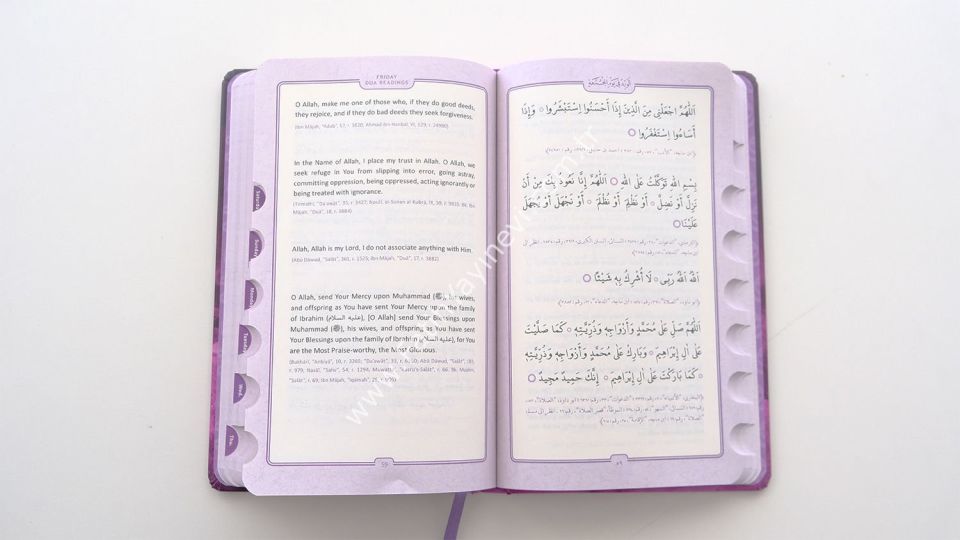 FRIDAY
DUA READINGS
O Allah, make me one of those who, if they do good deeds,
they rejoice, and if they do bad deeds they seek forgiveness.
(Ibn Mājah, "Adab", 57, r. 3820; Ahmad ibn Hanbal, VI, 129, r. 24980)
In the Name of Allah, I place my trust in Allah. O Allah, we
seek refuge in You from slipping into error, going astray,
committing oppression, being oppressed, acting ignorantly or
being treated with ignorance.
Mājah, "Duā", 18, r. 3884)
Allah, Allah is my Lord, I do not associate anything with Him.
(Abū Dāwud, "Salāt", 361, r. 1525; Ibn Mājah, "Duā", 17, r. 3882)
O Allah, send Your Mercy upon Muhammad (ﷺ), his wives,
and offspring as You have sent Your Mercy upon the family
of Ibrahim (عليه السلام), [O Allah] send Your Blessings upon
Muhammad (ﷺ), his wives, and offspring as You have sent
Your Blessings upon the family of Ibrahim (عليه السلام), for You
are the Most Praise-worthy, the Most Glorious.
59
Saturday
Sunday
Monday
Tuesday
Wed.
Thu.
اَللّٰهُمَّ اجْعَلْنِي مِنَ الَّذِينَ إِذَا أَحْسَنُوا اِسْتَبْشَرُوا وَإِذَا
أَسَاءُوا اِسْتَغْفَرُوا
بِسْمِ اللّٰهِ تَوَكَّلْتُ عَلَى اللّٰهِ اَللّٰهُمَّ إِنَّا نَعُوذُ بِكَ مِنْ أَنْ
نَزِلَّ أَوْ نَضِلَّ أَوْ نَظْلِمَ أَوْ نُظْلَمَ أَوْ نَجْهَلَ أَوْ يُجْهَلَ
عَلَيْنَا
اَللّٰهُ اَللّٰهُ رَبِّى لَا أُشْرِكُ بِهِ شَيْئًا
اَللّٰهُمَّ صَلِّ عَلَى مُحَمَّدٍ وَأَزْوَاجِهِ وَذُرِّيَّتِهِ كَمَا صَلَّيْتَ
عَلَى اٰلِ إِبْرَاهِيمَ وَبَارِكْ عَلَى مُحَمَّدٍ وَأَزْوَاجِهِ وَذُرِّيَّتِهِ
كَمَا بَارَكْتَ عَلَى اٰلِ إِبْرَاهِيمَ إِنَّكَ حَمِيدٌ مَجِيدٌ
٥٩